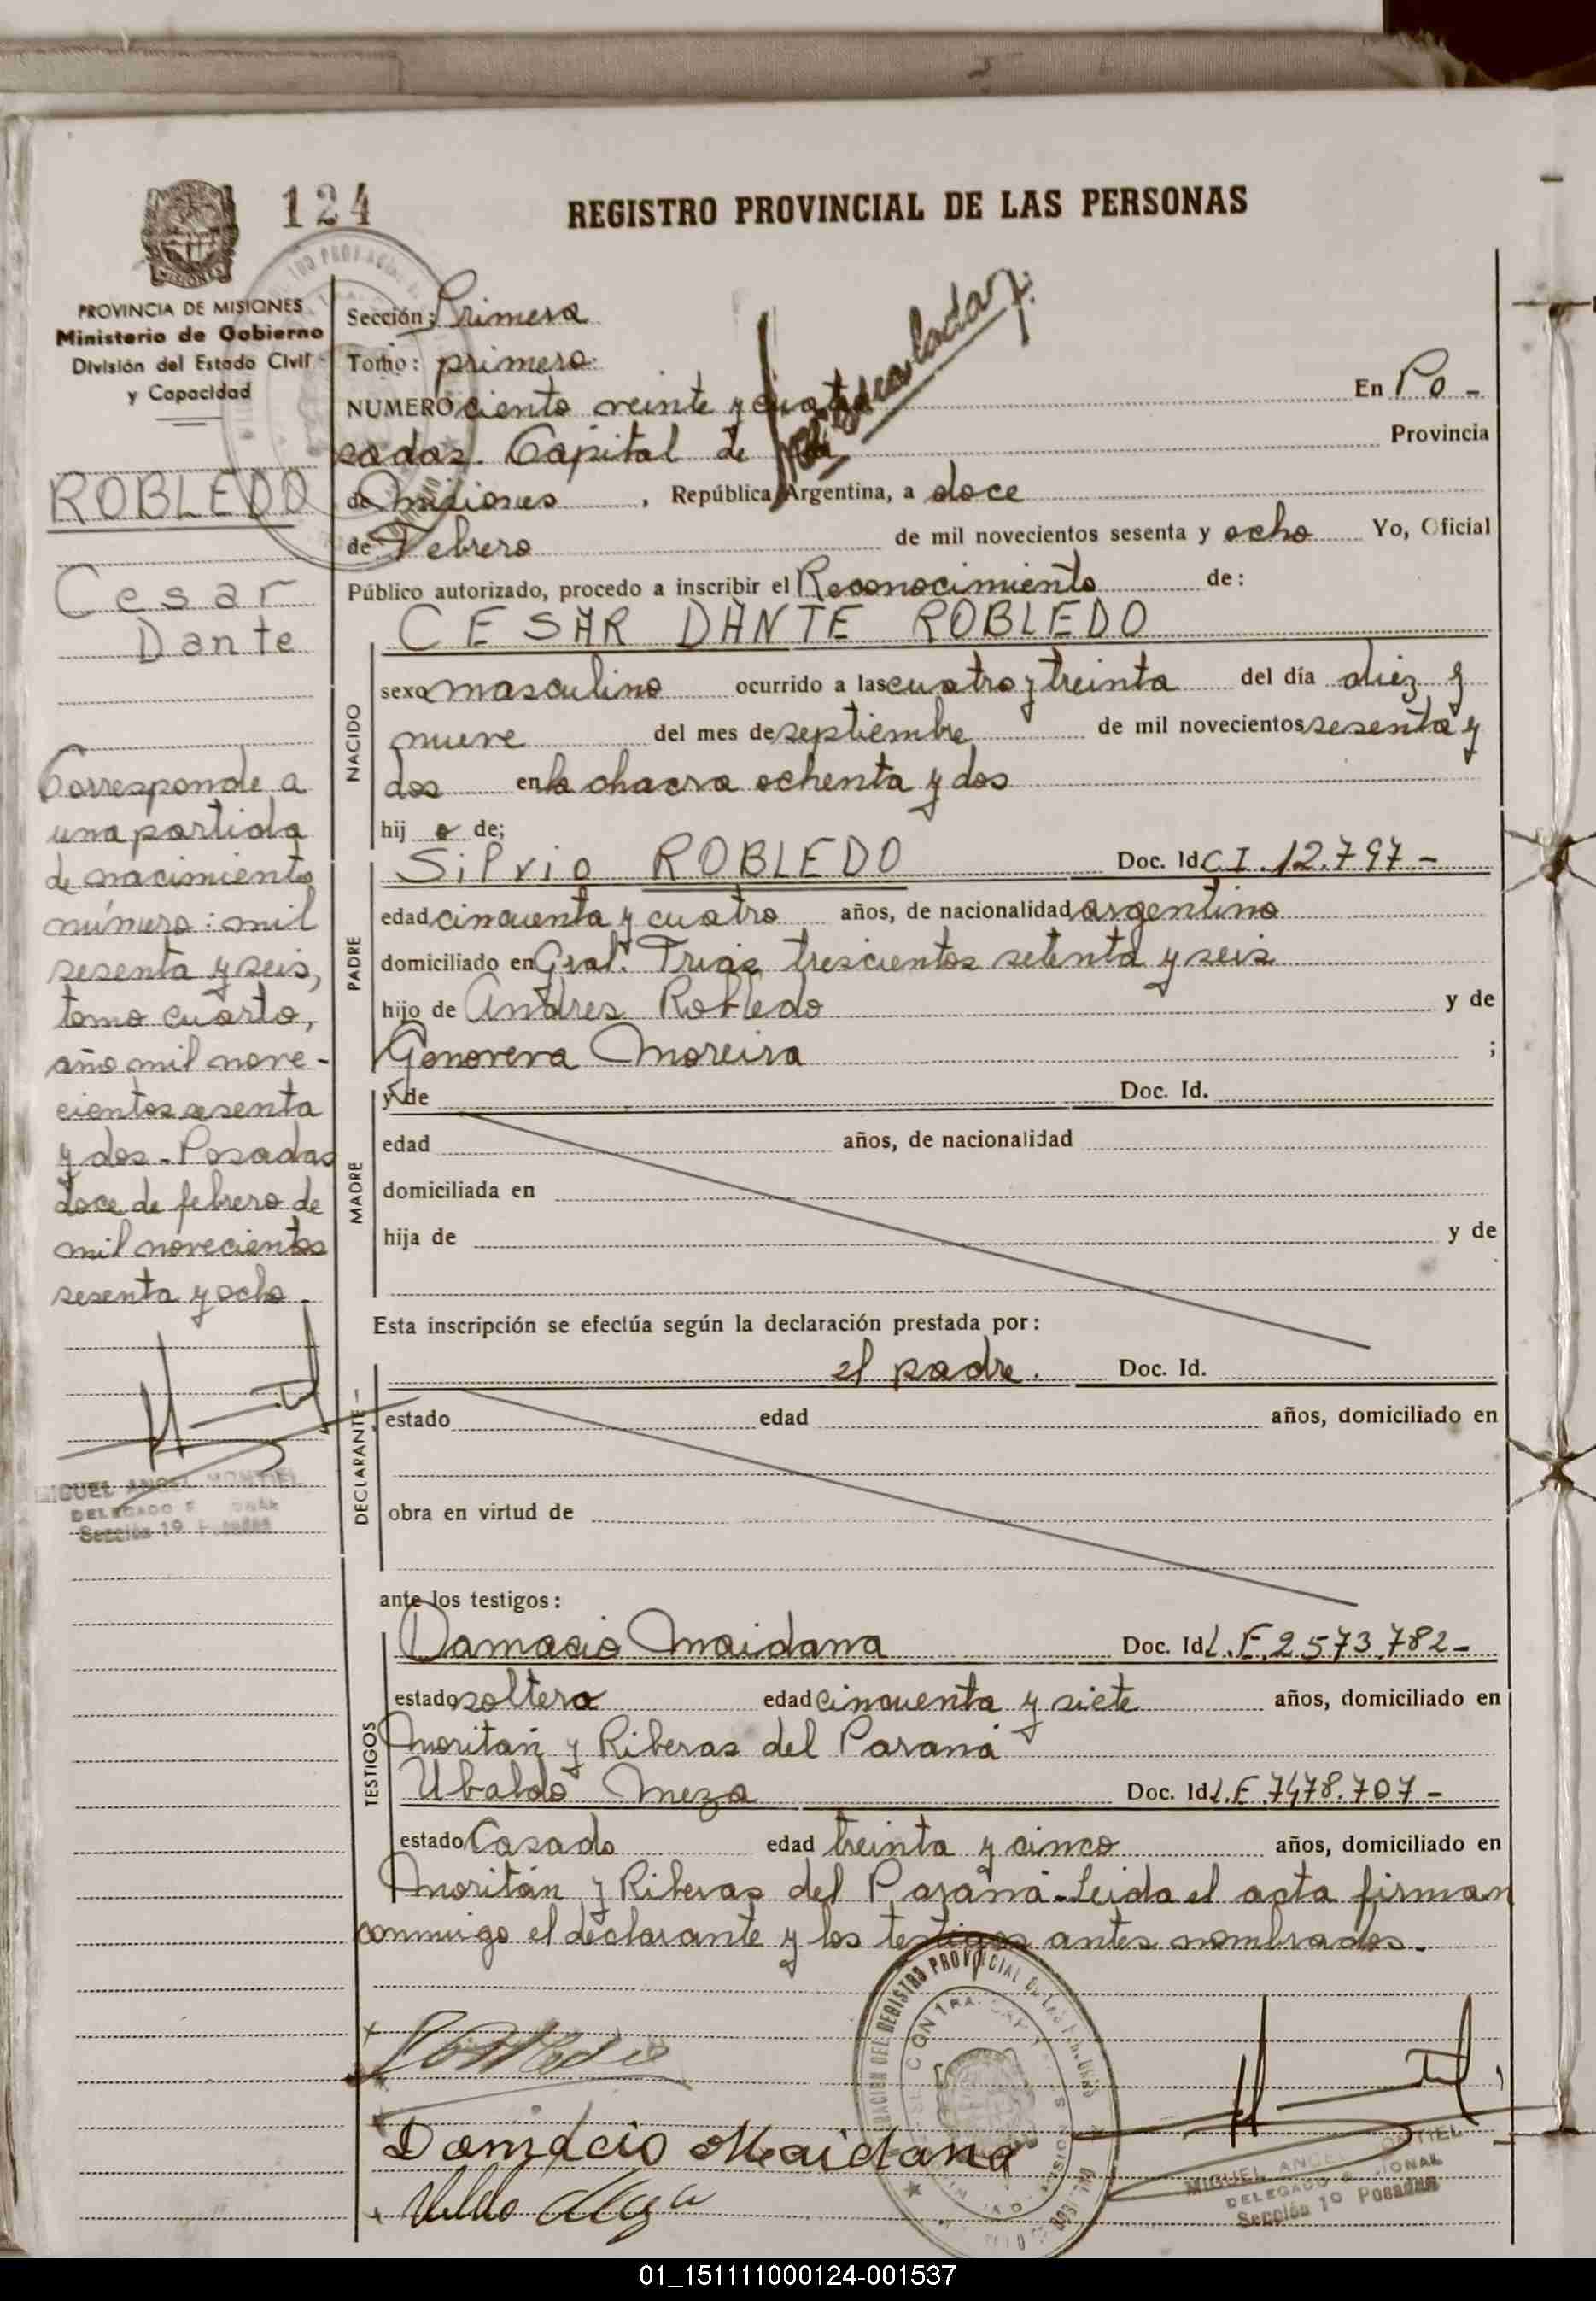 124
REGISTRO PROVINCIAL DE LAS PERSONAS
PROVINCIA DE MISIONES
Ministerio de Gobierno
División del Estado Civil
y Capacidad
ROBLEDO
Cesar
Dante
Corresponde a
una partida
de nacimiento
número: mil
sesenta y seis,
tomo cuarto,
año mil nove-
cientos sesenta
y dos - Posadas
doce de febrero de
mil novecientos
sesenta y ocho.
MIGUEL ANGEL MONTIEL
DELEGADO
Sección 1º Posadas
Sección: Primera
Tomo: primero
NUMERO ciento veinte y cuatro En Po-
sadas. Capital de la Provincia
de Misiones, República Argentina, a doce
de Febrero de mil novecientos sesenta y ocho Yo, Oficial
Público autorizado, procedo a inscribir el Reconocimiento de:
CESAR DANTE ROBLEDO
NACIDO
sexo masculino ocurrido a las cuatro y treinta del día diez y
nueve del mes de septiembre de mil novecientos sesenta y
dos en la chacra ochenta y dos
hijo de;
PADRE
Silvio ROBLEDO Doc. Id. C I. 12.797-
edad cincuenta y cuatro años, de nacionalidad argentino
domiciliado en Gral. Frias trescientos setenta y seis
hijo de Andres Robledo y de
Genoveva Moreira ;
MADRE
y de Doc. Id.
edad años, de nacionalidad
domiciliada en
hija de y de
Esta inscripción se efectúa según la declaración prestada por:
DECLARANTE -
el padre. Doc. Id.
estado edad años, domiciliado en
obra en virtud de
ante los testigos:
TESTIGOS
Damacio Maidana Doc. Id. L.E. 2.573.782-
estado soltero edad cincuenta y siete años, domiciliado en
Moritán y Riberas del Paraná
Ubaldo Meza Doc. Id. L.E. 7478.707-
estado Casado edad treinta y cinco años, domiciliado en
Moritán y Riberas del Paraná - Leida el acta firman
conmigo el declarante y los testigos antes nombrados.
Damacio Maidana
MIGUEL ANGEL MONTIEL
DELEGADO
Sección 1º Posadas
01_151111000124-001537